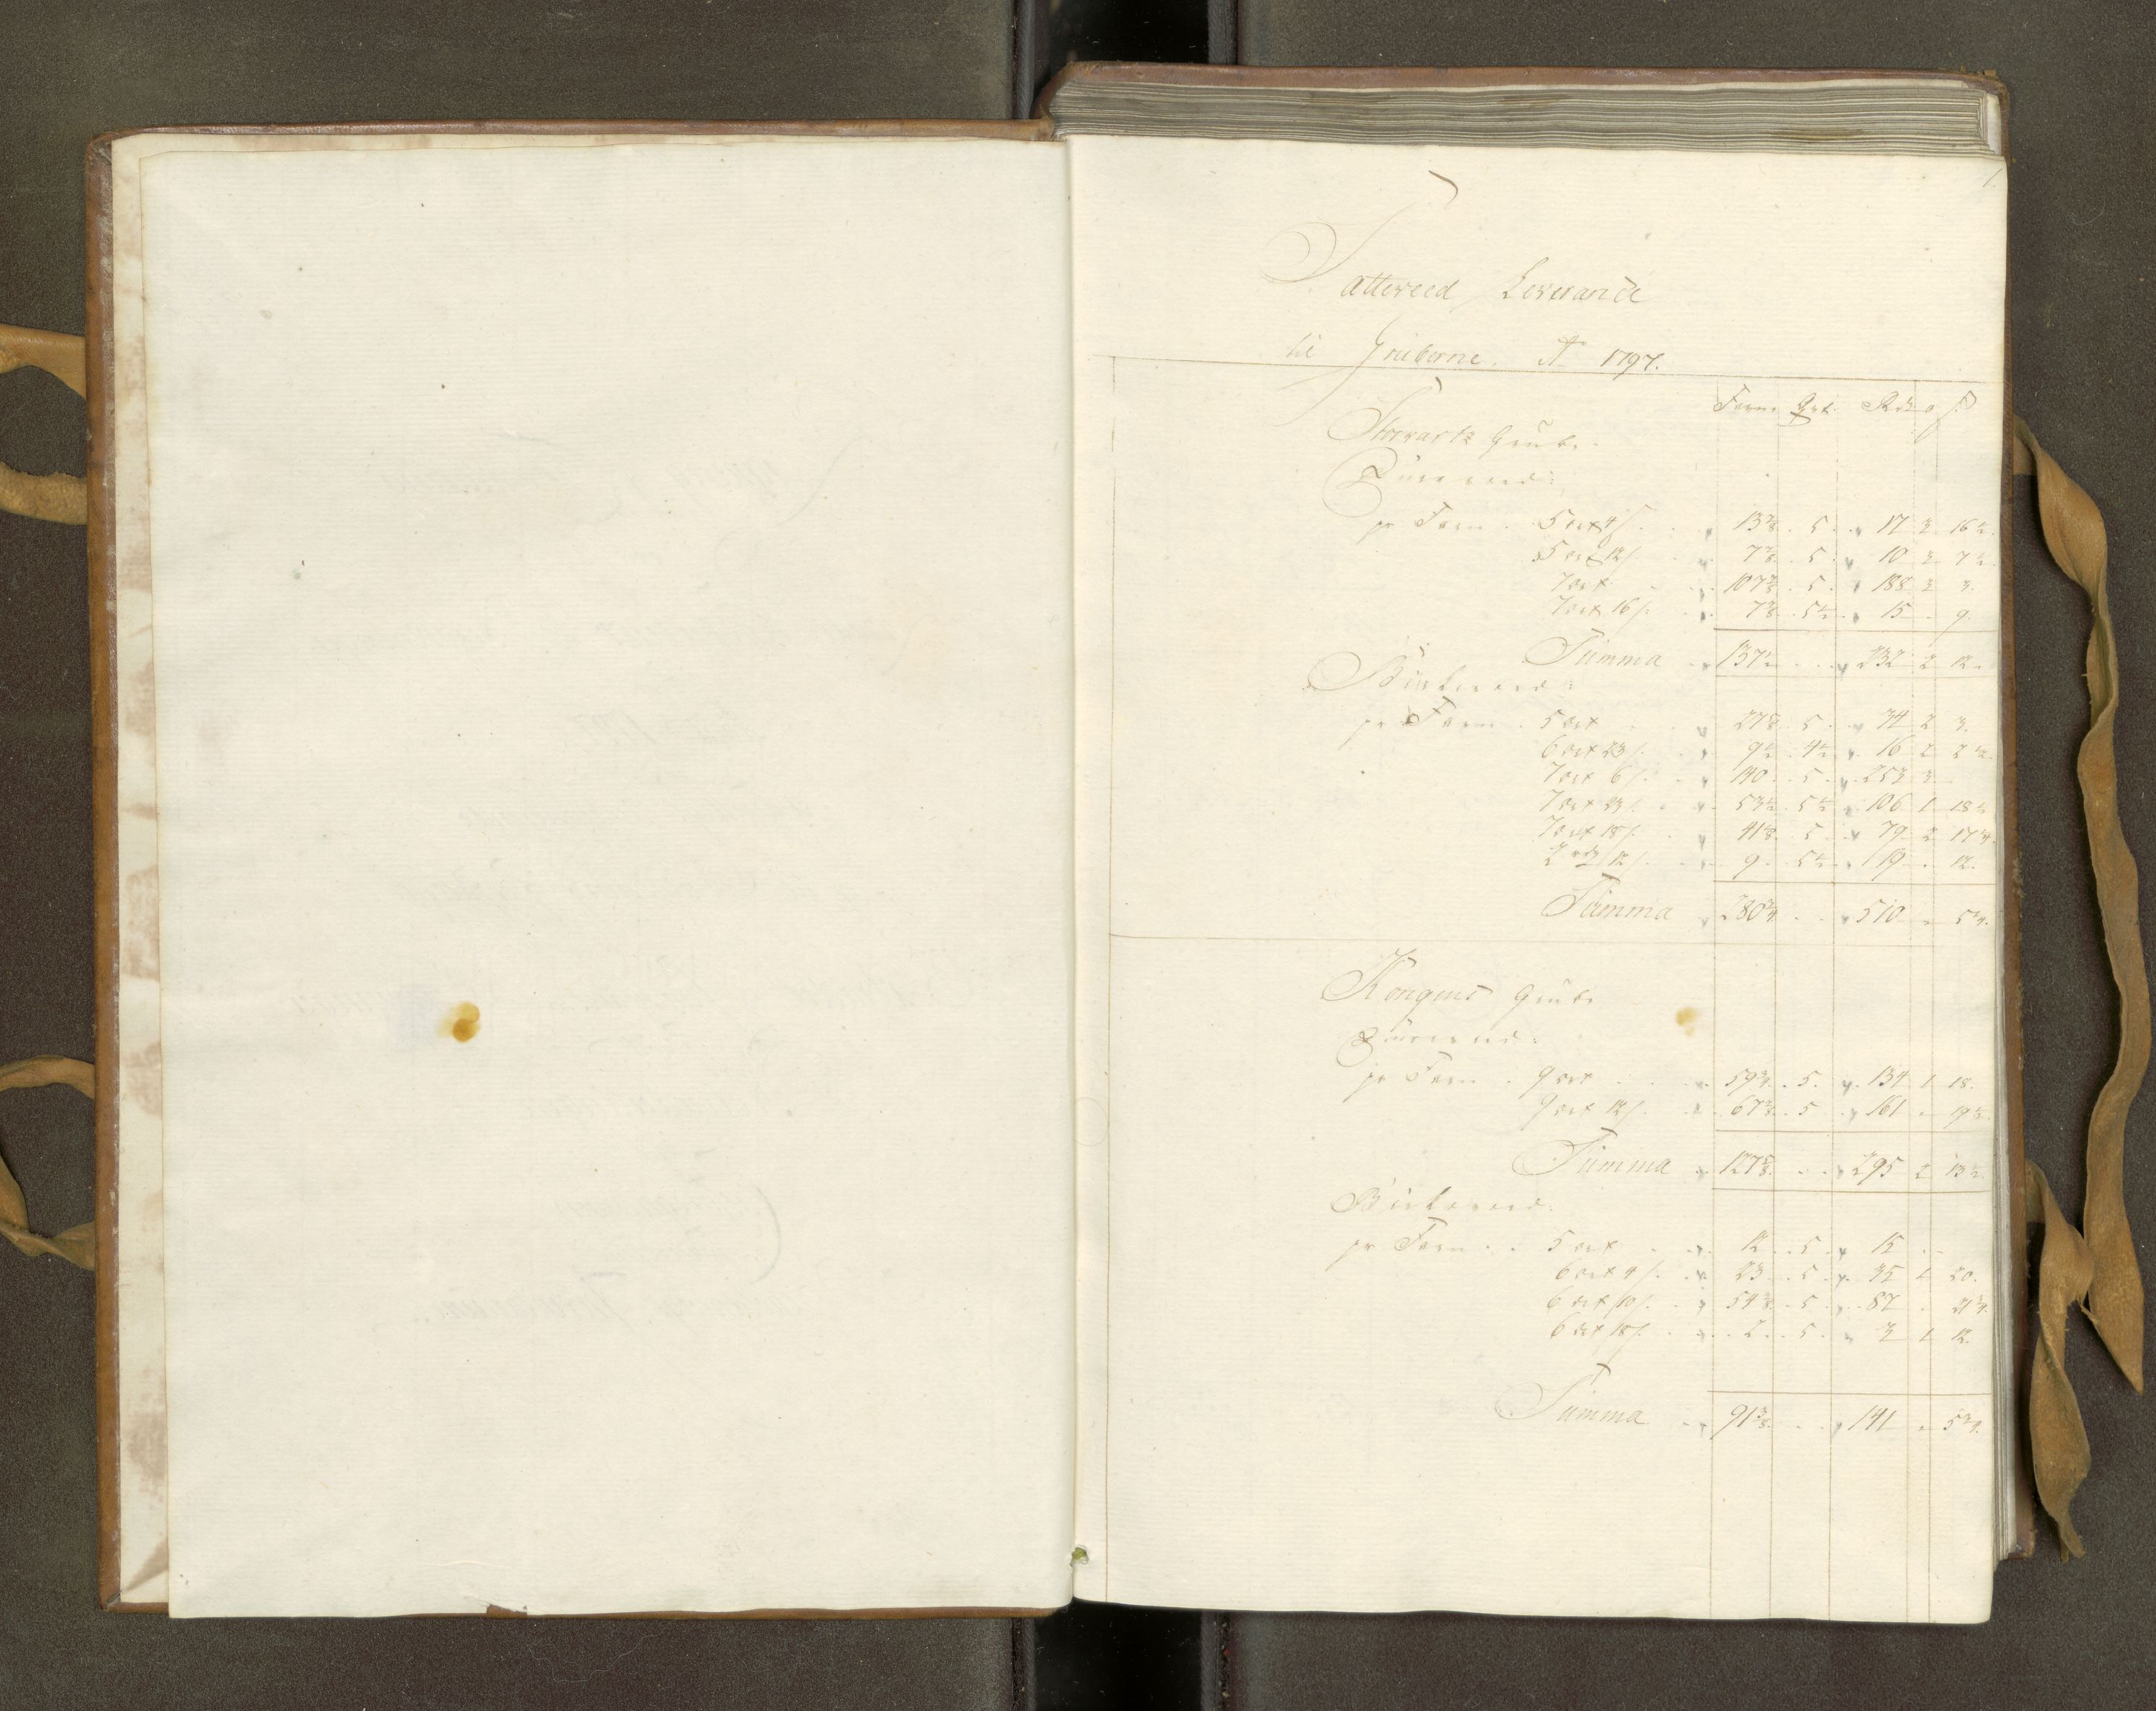 1.
Satteveed Leverance
til Gruberne. Ao 1797.
Favn. Qvt. Rdr o ß
Storvartz Grube.
Furreveed:
pr Favn . 5 ort 4 ß. 13 7/8 . 5 . 17 3 16 1/2.
5 ort 12 ß 7 7/8 . 5 10 3 7 1/2.
7 ort 107 7/8 . 5 . 188 3 3.
7 ort 16 ß. 7 7/8 . 5 1/2 . 15 . 9.
Summa 137 1/2 232 2 12.
Birkeveed:
pr Favn . 5 ort 27 5/8 . 5 . 34 2 3.
6 ort 23 ß. 9 1/2 . 4 1/2 . 16 2 2 1/2.
7 ort 6 ß. 140 . 5 . 253 3
7 ort 23 ß. 53 1/2 . 5 1/2 . 106 1 18 1/2
7 ort 18 ß. 41 1/8 . 5 79 2 17 1/4.
2 rdr 12 ß. 9 . 5 1/2 . 19 . 12.
Summa 280 3/4 510 . 5 1/4.
Kongens Grube
Furreveed:
pr Favn . 9 ort 59 3/4 . 5 . 134 1 18.
9 ort 12 ß. 67 7/8 . 5 161 . 19 1/2.
Summa 127 5/8. 295 2 13 1/2.
Birkeveed:
pr Favn . . 5 ort 12 . 5 15
6 ort 4 ß. 23 . 5 . 35 1 20.
6 ort 10 ß. 54 3/8 . 5 . 87 . 21 3/4.
6 ort 18 ß. 2 . 5 . 3 1 12.
Summa 91 3/8. 141 . 5 3/4.